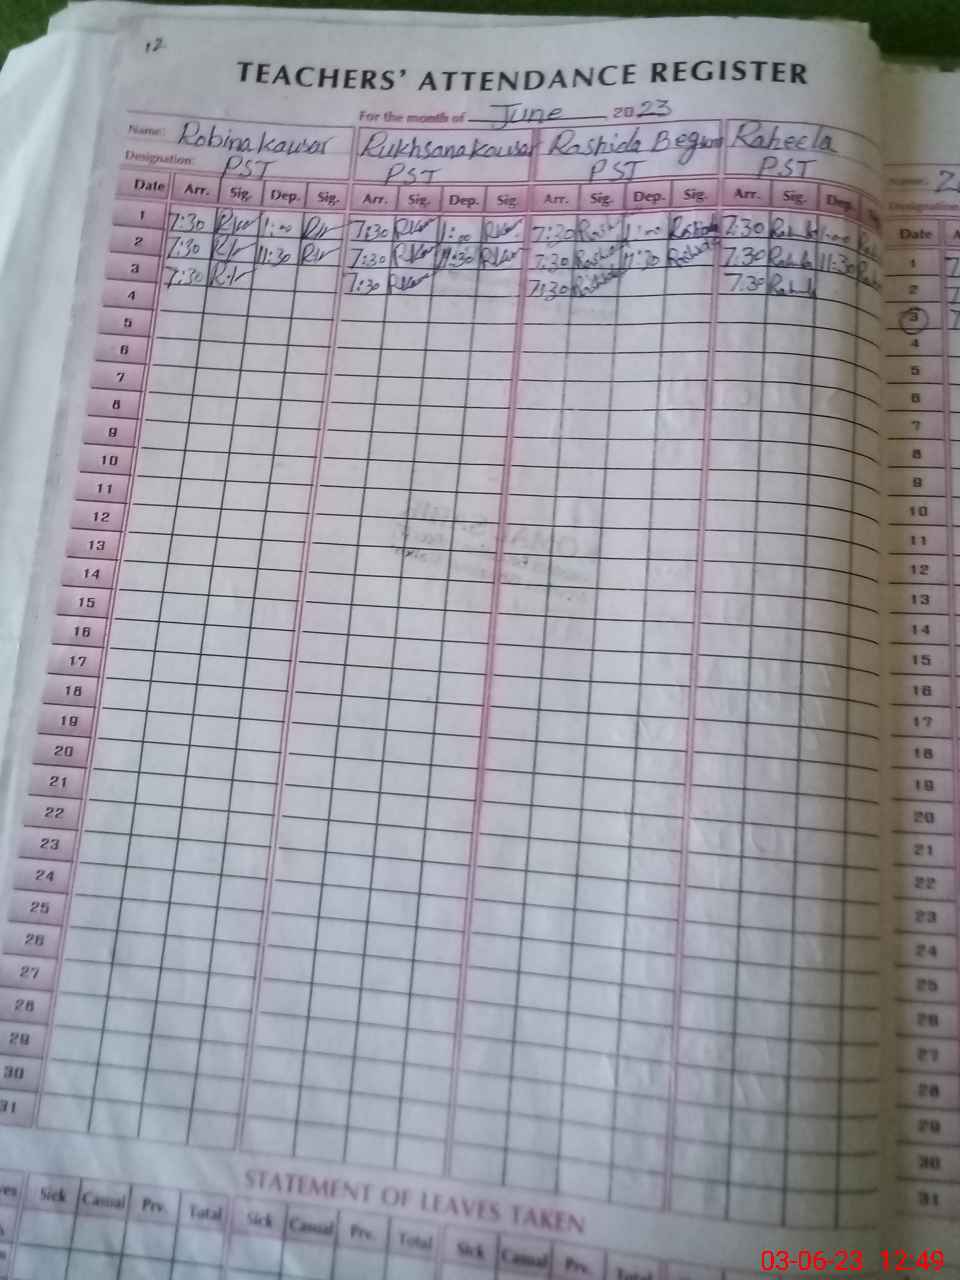 12
TEACHERS' ATTENDANCE REGISTER
For the month of June 2023
Name: Robina kausar Rukhsana kausar Rashida Begum Raheela
Designation: PST PST PST PST
Date Arr. Sig. Dep. Sig. Arr. Sig. Dep. Sig. Arr. Sig. Dep. Sig. Arr. Sig. Dep.
1 7:30 1:00 7:30 1:00 7:30 1:00 7:30 1:00
2 7:30 11:30 7:30 11:30 7:30 11:30 7:30 11:30
3 7:30 7:30 7:30 7:30
4
5
6
7
8
9
10
11
12
13
14
15
16
17
18
19
20
21
22
23
24
25
26
27
28
29
30
31
STATEMENT OF LEAVES TAKEN
Sick Casual Prv. Total Sick Casual Prv. Total Sick Casual Prv. Total
Name:
Designation
Date
1
2
3
4
5
6
7
8
9
10
11
12
13
14
15
16
17
18
19
20
21
22
23
24
25
26
27
28
29
30
31
03-06-23 12:49